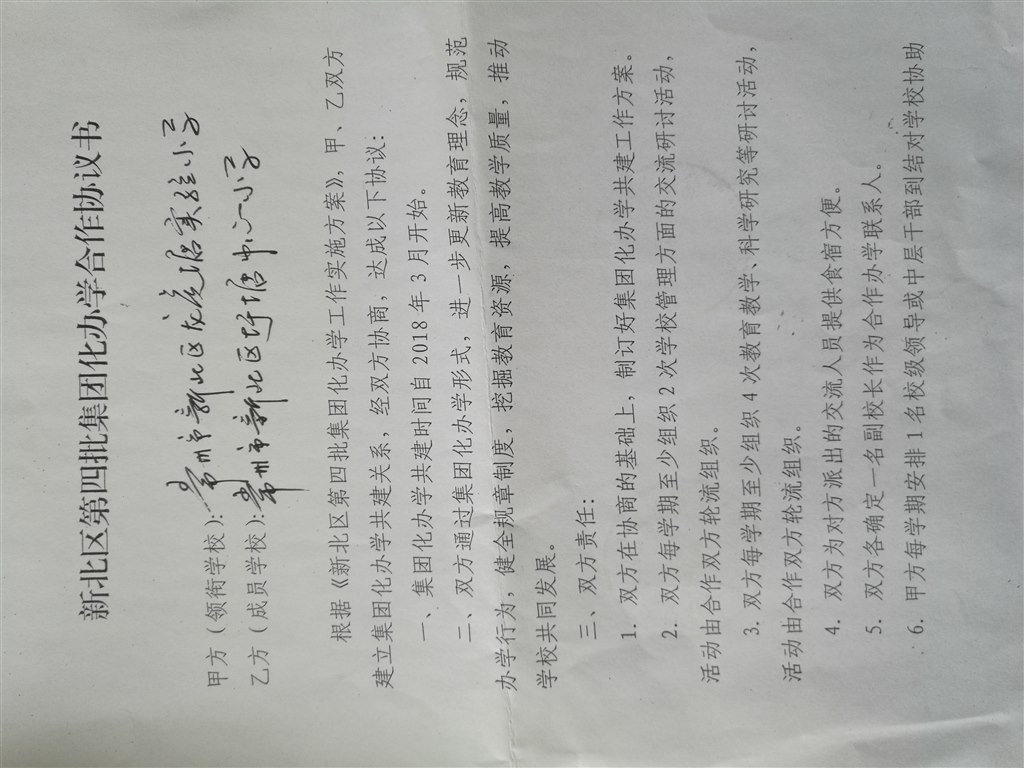 新北区第四批集团化办学合作协议书
甲方（领衔学校）：常州市新北区龙虎塘实验小学
乙方（成员学校）：常州市新北区圩塘中心小学
根据《新北区第四批集团化办学工作实施方案》，甲、乙双方
建立集团化办学共建关系，经双方协商，达成以下协议：
一、集团化办学共建时间自 2018 年 3 月开始。
二、双方通过集团化办学形式，进一步更新教育理念，规范
办学行为，健全规章制度，挖掘教育资源，提高教学质量，推动
学校共同发展。
三、双方责任：
1. 双方在协商的基础上，制订好集团化办学共建工作方案。
2. 双方每学期至少组织 2 次学校管理方面的交流研讨活动，
活动由合作双方轮流组织。
3. 双方每学期至少组织 4 次教育教学、科学研究等研讨活动，
活动由合作双方轮流组织。
4. 双方为对方派出的交流人员提供食宿方便。
5. 双方各确定一名副校长作为合作办学联系人。
6. 甲方每学期安排 1 名校级领导或中层干部到结对学校协助